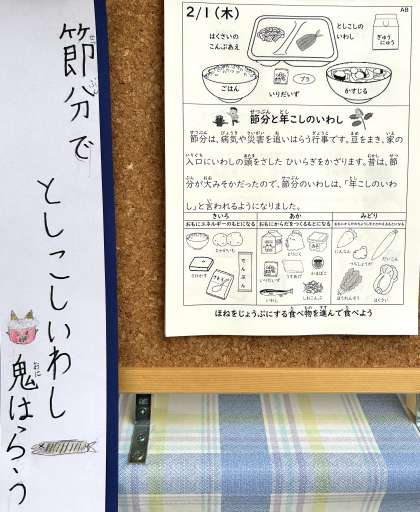 節分で
としこしいわし
鬼はらう
おに
2/1(木)
AB
はくさいの
こんぶあえ
としこしの
いわし
ぎゅう
にゅう
ごはん
いりだいず
プラ
かきじる
節分と年こしのいわし
節分は、病気や災害を追いはらう行事です。豆をまき、家の
入口にいわしの頭をさした ひいらぎをかざります。昔は、節
分が大みそかだったので、節分のいわしは、「年こしのいわ
し」と言われるようになりました。
きいろ
あか
みどり
おもにエネルギーのもとになる
おもにからだをつくるもとになる
じゃがいも
でんぷん
とりにく
いりだいず
うすあげ
かまぼこ
いわし
にんじん
だいこん
ほうれんそう
はくさい
ほねをじょうぶにする食べ物を進んで食べよう